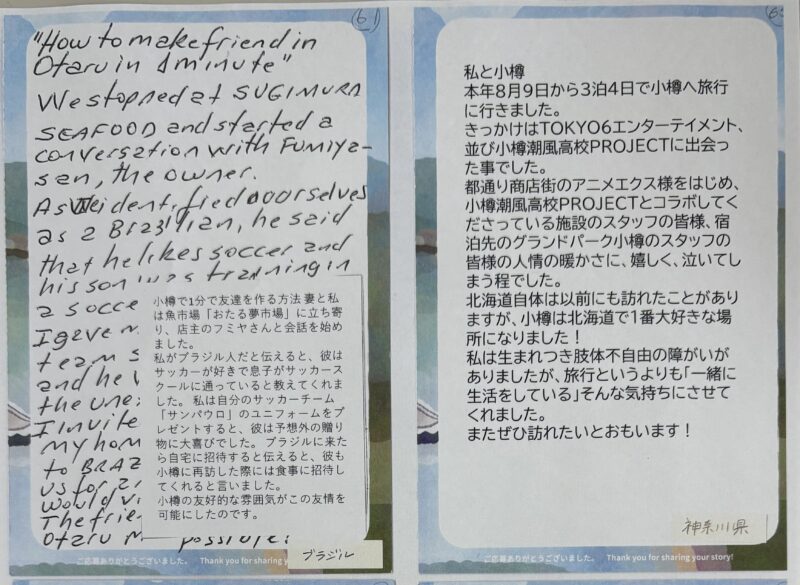 (61)
"How to make friend in
Otaru in 1 minute"
We stopped at SUGIMURA
SEAFOOD and started a
conversation with Fumiya-
san, the owner.
As We identified ourselves
as a Brazilian, he said
that he likes soccer and
his son was training in
a socce
I gave m
team s
and he
the une
I Invite
my hom
to BRAZ
us for
would vi
The frie
Otaru m possible!
小樽で1分で友達を作る方法 妻と私
は魚市場「おたる夢市場」に立ち寄
り、店主のフミヤさんと会話を始め
ました。
私がブラジル人だと伝えると、彼は
サッカーが好きで息子がサッカース
クールに通っていると教えてくれま
した。 私は自分のサッカーチーム
「サンパウロ」のユニフォームをプ
レゼントすると、彼は予想外の贈り
物に大喜びでした。 ブラジルに来た
ら自宅に招待すると伝えると、彼も
小樽に再訪した際には食事に招待し
てくれると言いました。
小樽の友好的な雰囲気がこの友情を
可能にしたのです。
ブラジル
ご応募ありがとうございました。 Thank you for sharing y
私と小樽
本年8月9日から3泊4日で小樽へ旅行
に行きました。
きっかけはTOKYO6エンターテイメント、
並び小樽潮風高校PROJECTに出会っ
た事でした。
都通り商店街のアニメエクス様をはじめ、
小樽潮風高校PROJECTとコラボしてく
ださっている施設のスタッフの皆様、宿
泊先のグランドパーク小樽のスタッフの
皆様の人情の暖かさに、嬉しく、泣いてし
まう程でした。
北海道自体は以前にも訪れたことがあり
ますが、小樽は北海道で1番大好きな場
所になりました！
私は生まれつき肢体不自由の障がいが
ありましたが、旅行というよりも「一緒に
生活をしている」そんな気持ちにさせて
くれました。
またぜひ訪れたいとおもいます！
神奈川県
ご応募ありがとうございました。 Thank you for sharing your story!